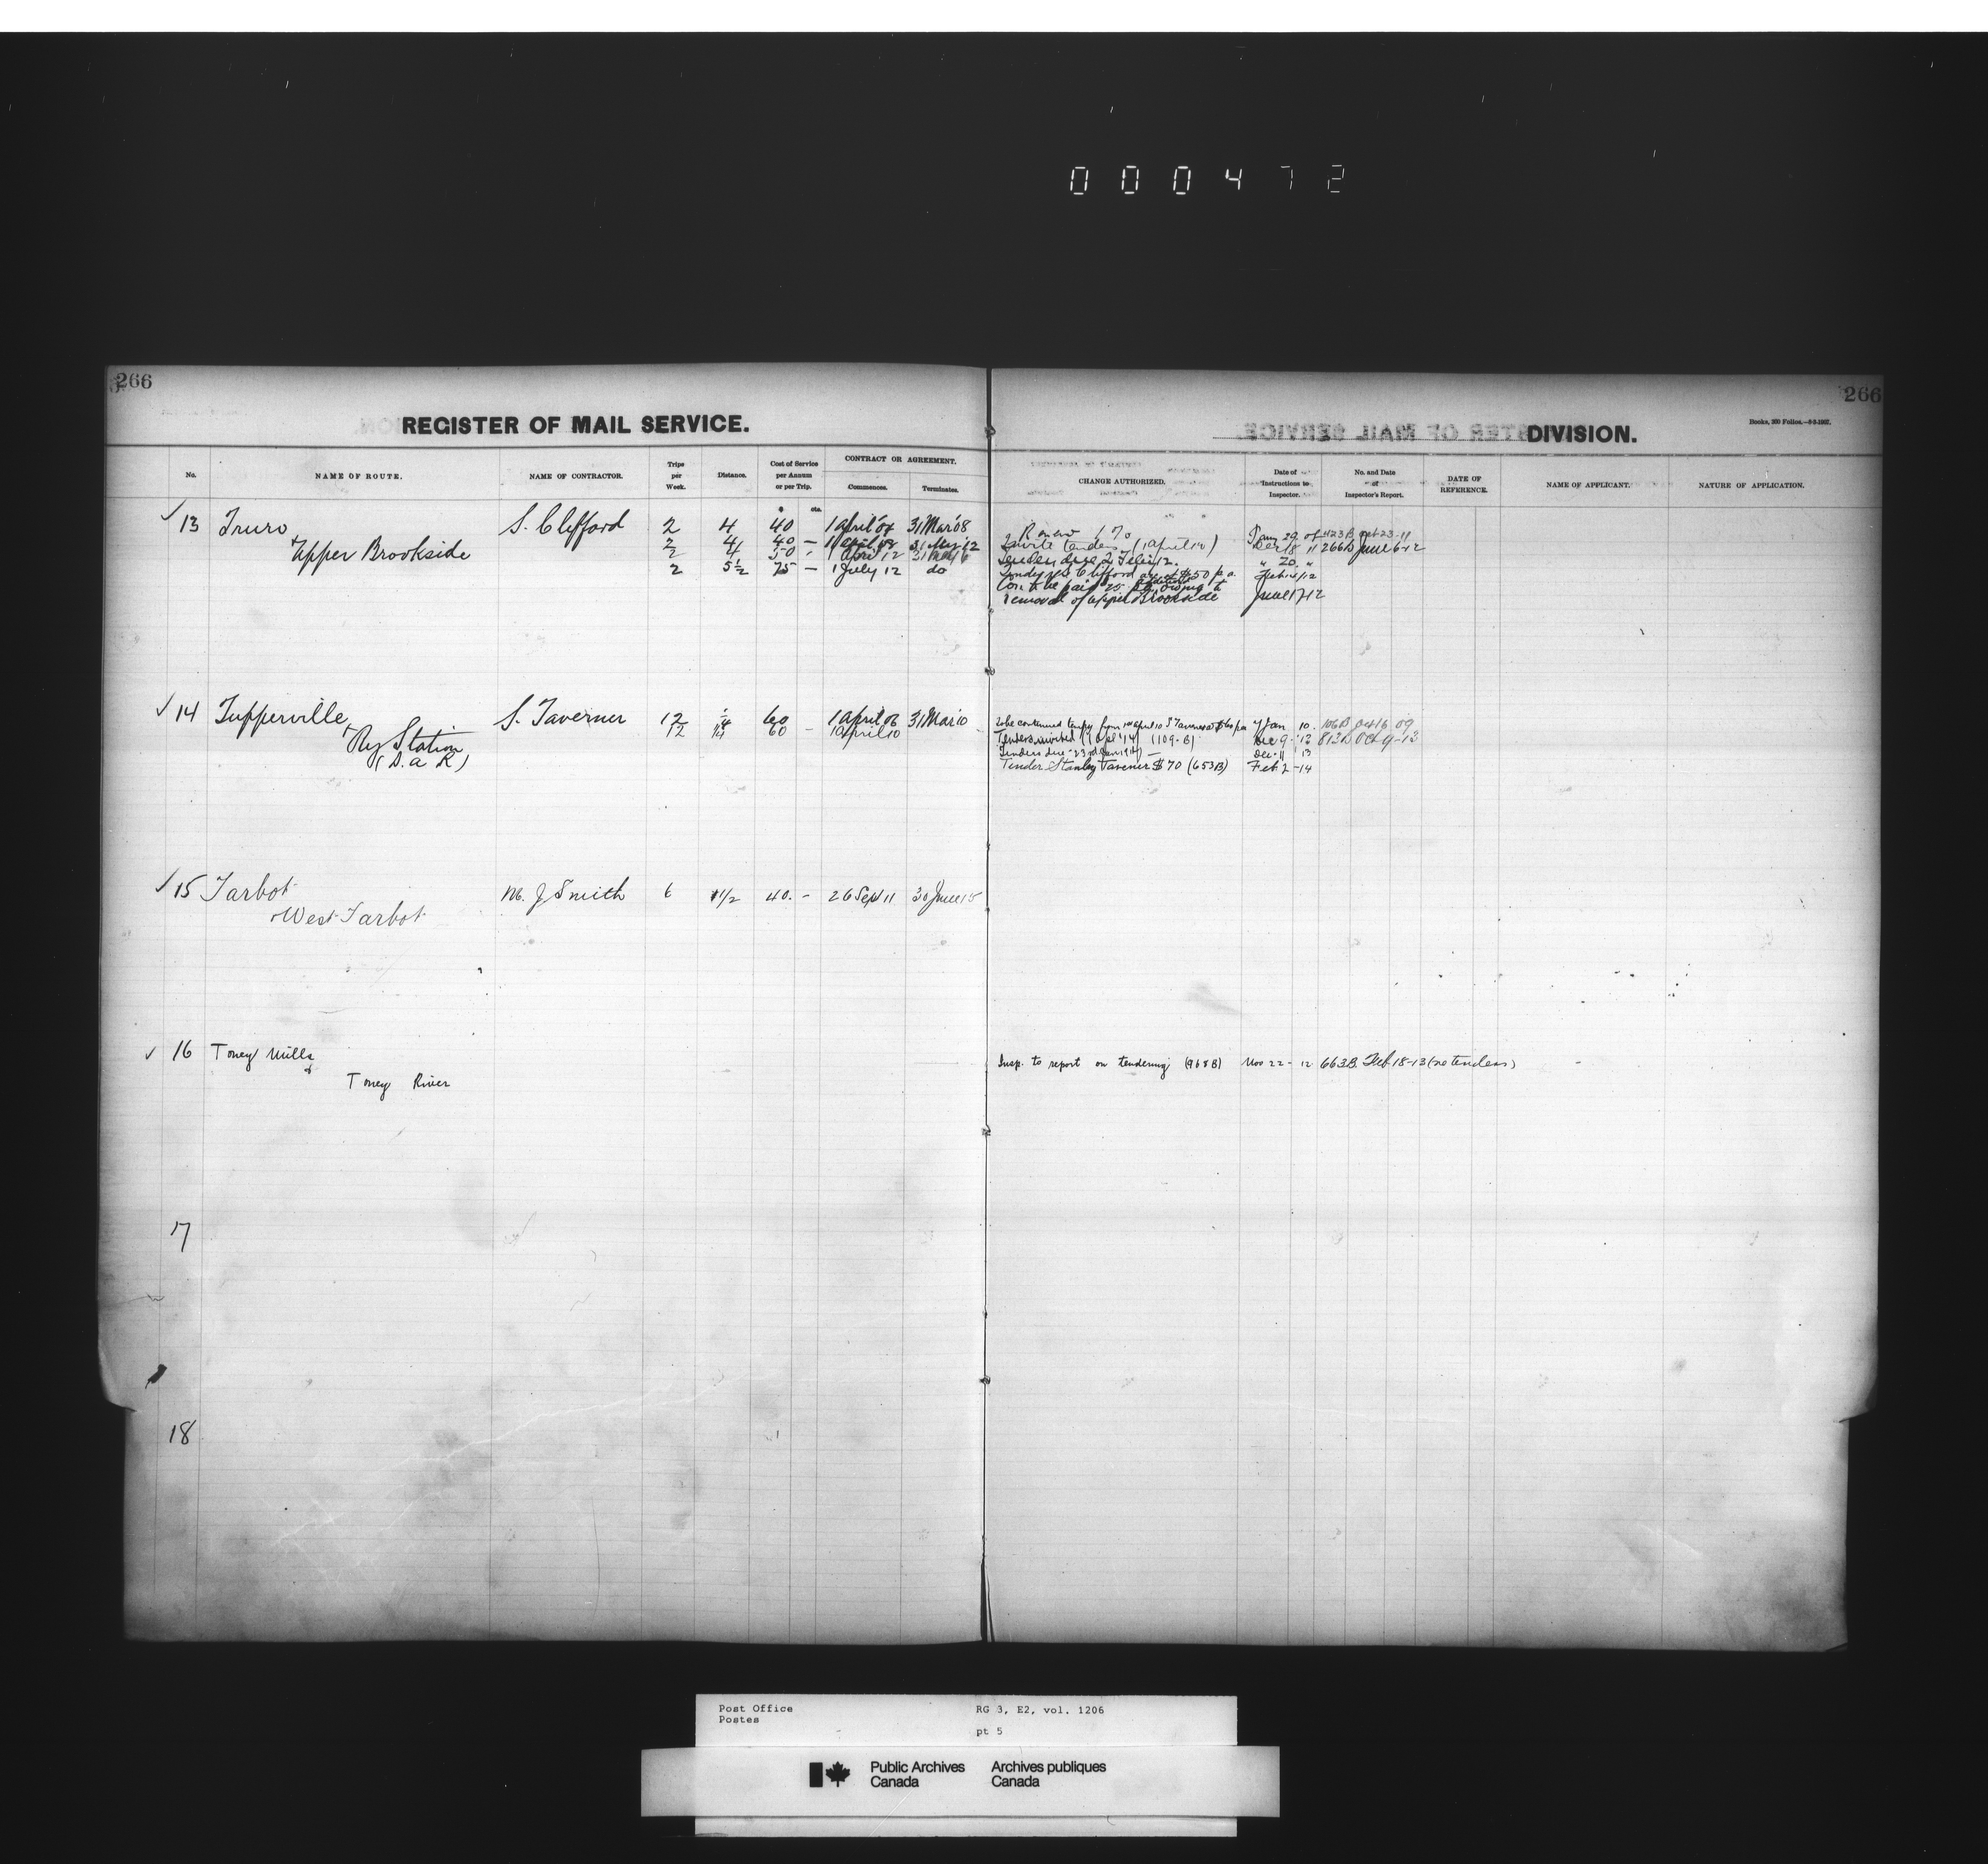 000472
266
266
REGISTER OF MAIL SERVICE.
DIVISION.
Books, 200 Folios.—8-5-1907.
No.
NAME OF ROUTE.
NAME OF CONTRACTOR.
Trips per Week.
Distance.
Cost of Service per Annum or per Trip.
CONTRACT OR AGREEMENT.
Commences.
Terminates.
CHANGE AUTHORIZED.
Date of Instructions to Inspector.
No. and Date of Inspector's Report.
DATE OF REFERENCE.
NAME OF APPLICANT.
NATURE OF APPLICATION.
$ cts.
13 Truro S. Clifford 2 4 40 1 April 04 31 Mar 08
+ Upper Brookside 2 4 40 — 1 April 08 31 Mar 12
2 4 50 1 April 12
2 5½ 75 — 1 July 12 do
Renew
Invite tenders (1 April 12) Dec 18 11 266B June 6-12
Tenders due 2 Feb 12. " 20 "
Tender S Clifford at $50 p a
Con to be paid 25 additional owing to
removal of Upper Brookside June 17 12
14 Tupperville S. Taverner 12 ¼ 60 1 April 06 31 Mar 10
+ Ry Station 12 ¼ 60 — 1 April 10
(D. a R)
to be continued tempy from 1st april 10 S Taverner at $60 pa 7 Jan 10.
Tenders invited (1 Apl '14) (109-B) Dec 9 - 13 813B Oct 9-13
Tenders due 23rd Jan 1914 — Dec 11 13
Tender Stanley Taverner $70 (653B) Feb 2 -14
15 Tarbot M. J Smith 6 1½ 40. - 26 Sep 11 30 June 15
+ West Tarbot
16 Toney Mills
&
Toney River
Insp. to report on tendering (968B) Nov 22 - 12 663B Feb 18-13 (no tenders)
17
18
Post Office RG 3, E2, vol. 1206
Postes
pt 5
Public Archives Archives publiques
Canada Canada